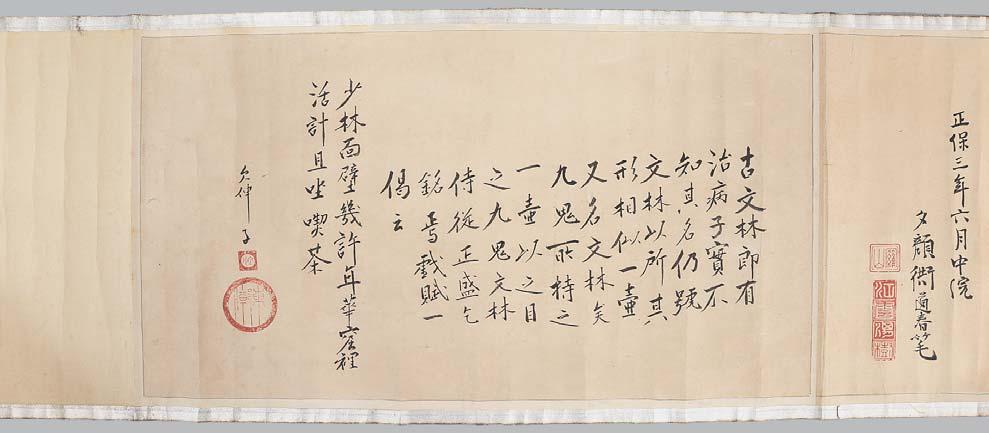 正保三年六月中浣
夕顔衖道春笔
羅山
江雲渭樹
古文林郎有
治病子實不
知其名仍號
文林以所其
形相似一壷
又名文林矣
九鬼所持之
一壷以之目
之九鬼文林
侍従正盛乞
銘焉戯賦一
偈云
少林面壁幾許年華裡
活計且坐喫茶
欠伸子